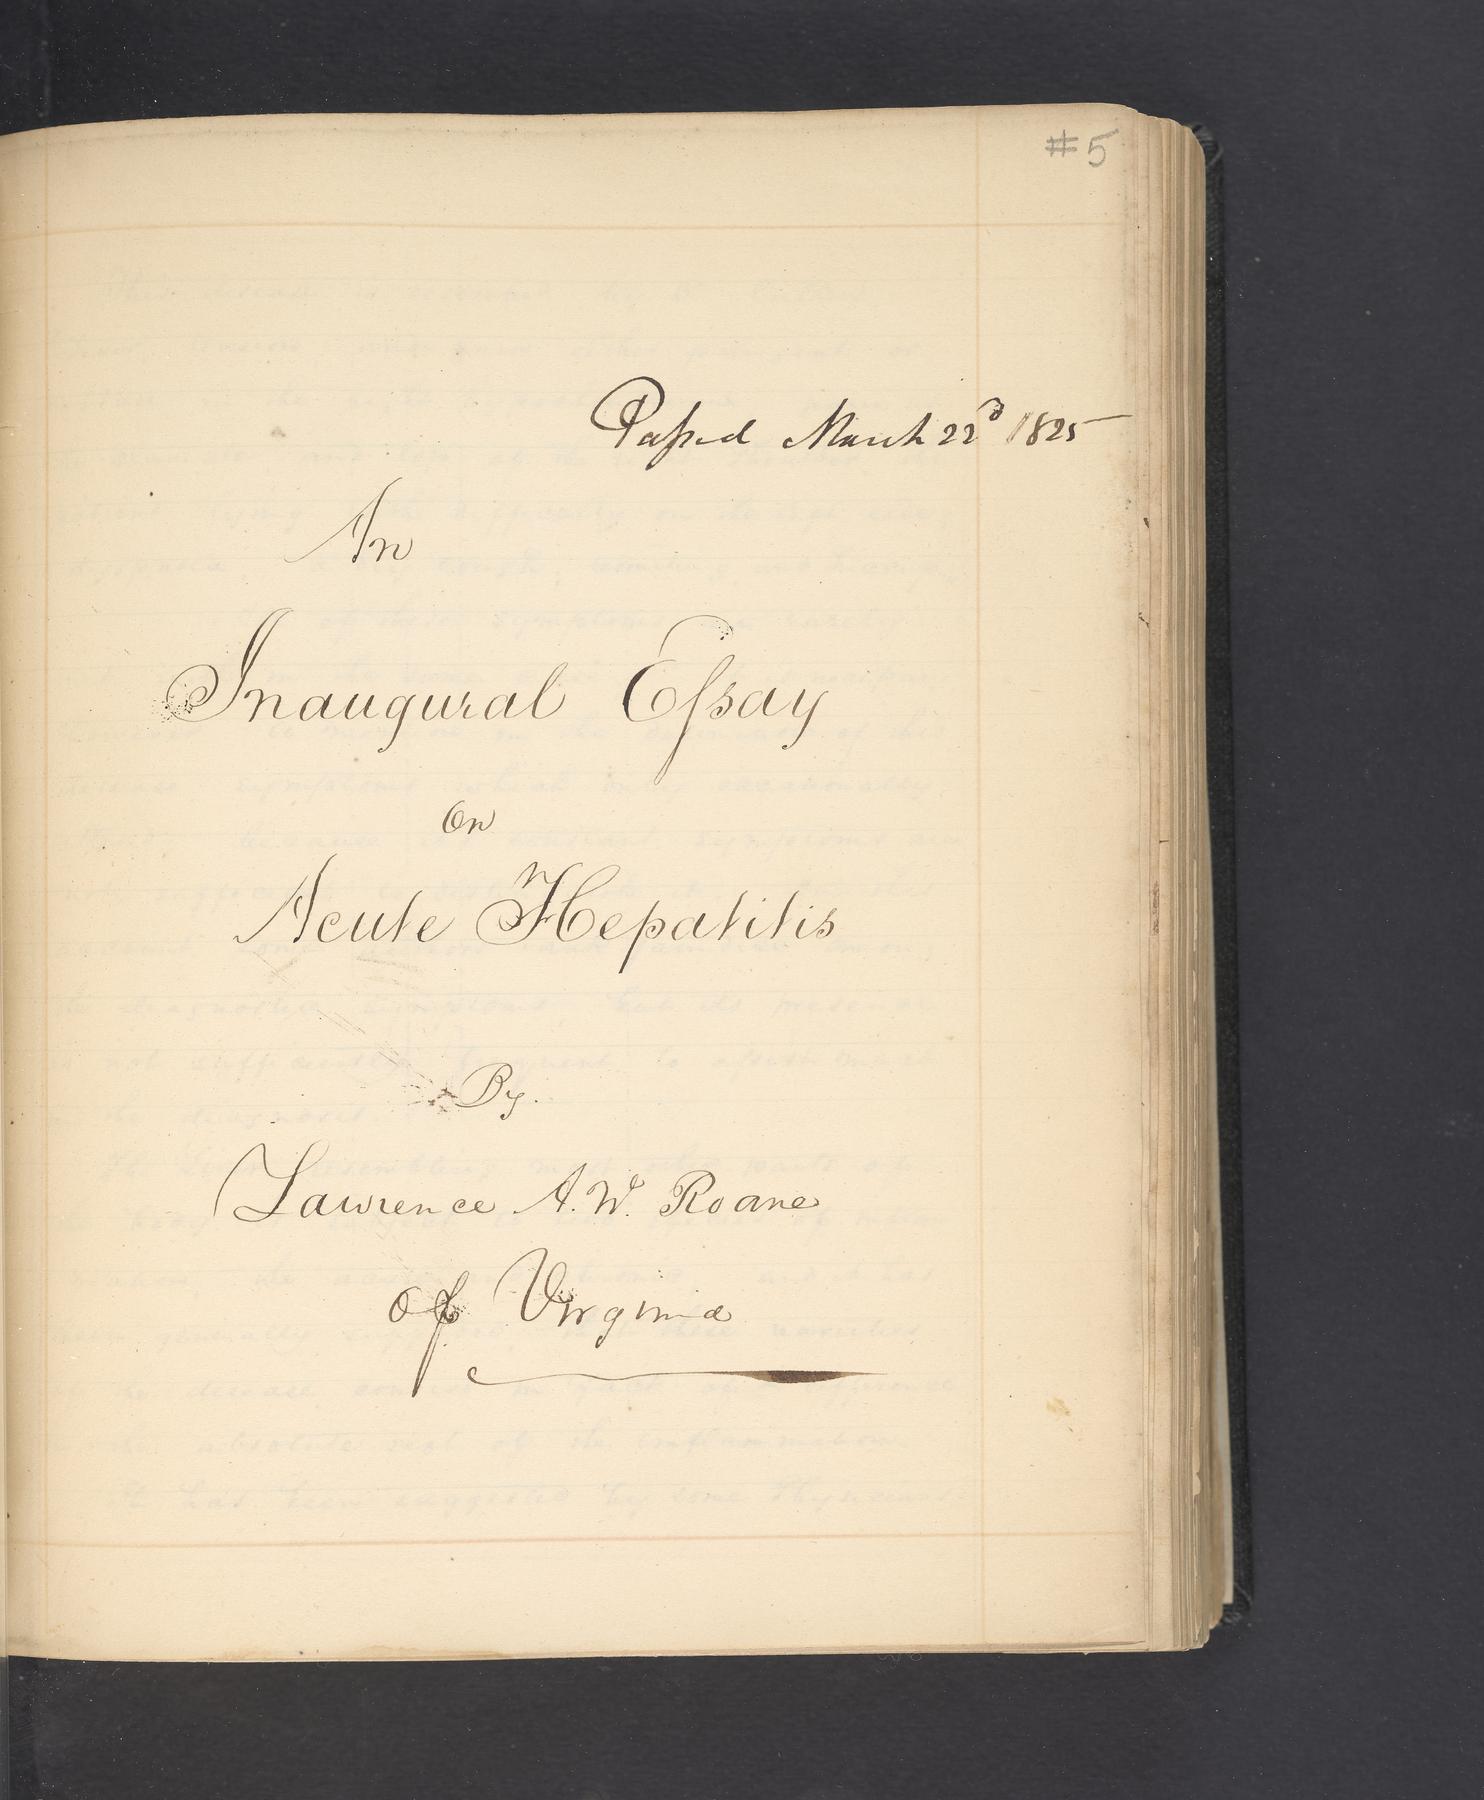 #5
Paſsed March 22d 1825
An
Inaugural Eſsay
On
Acute Hepatitis
By.
Lawrence A. W. Roane
of Virginia